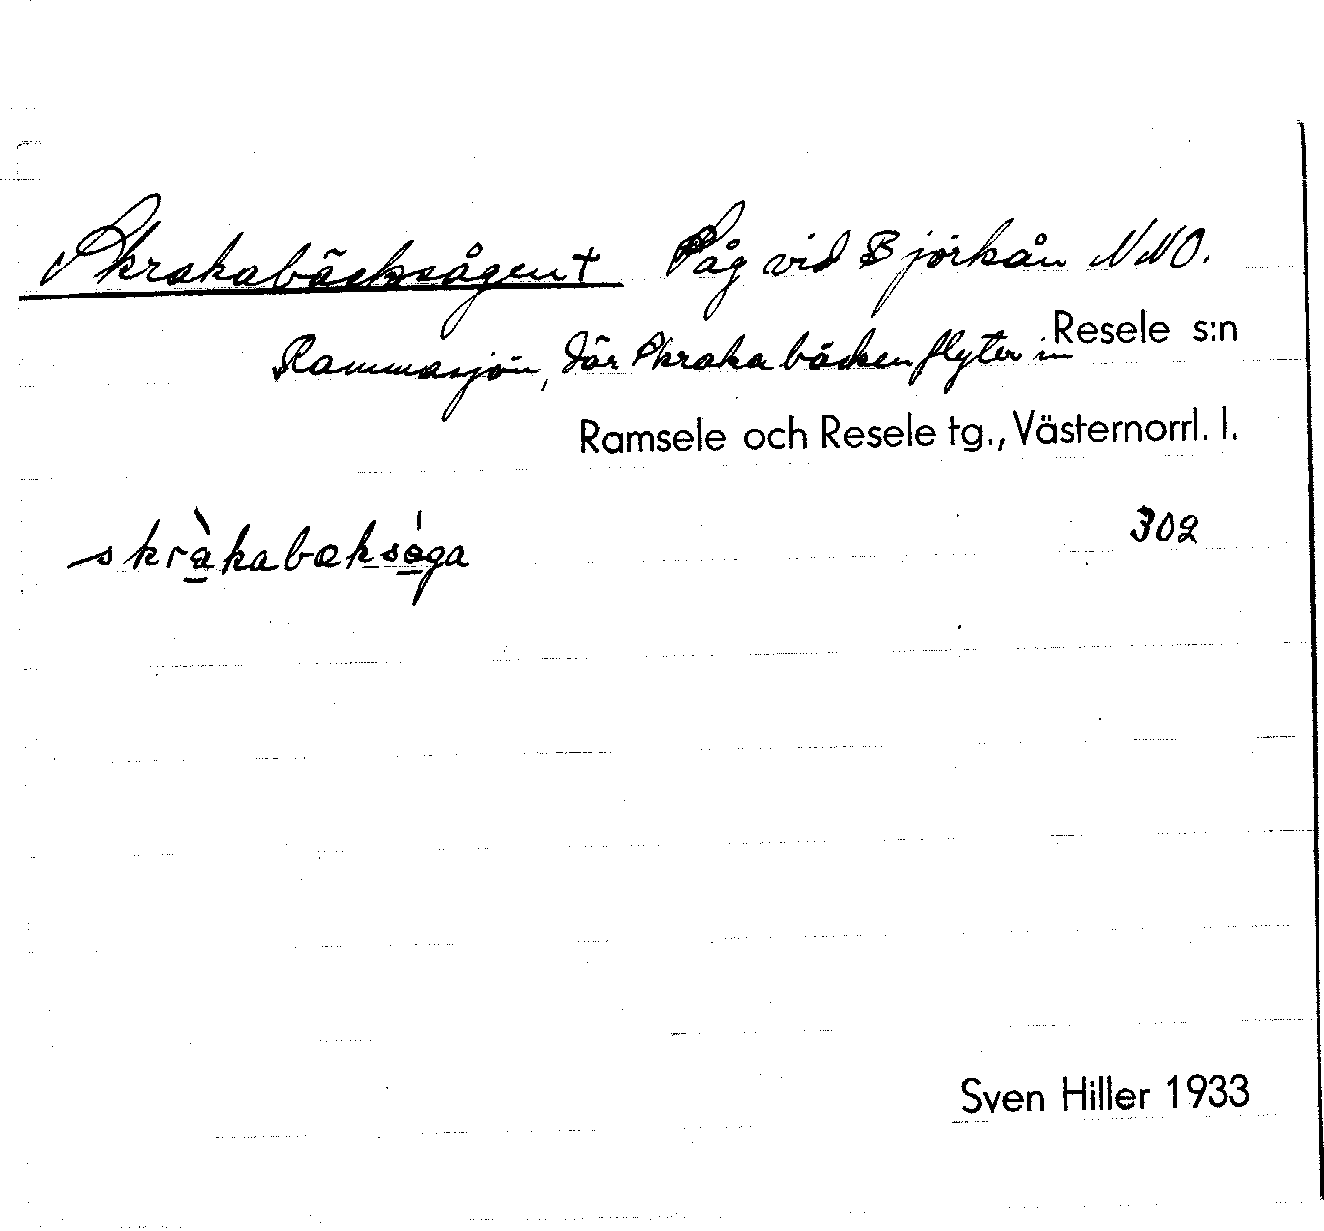 Skrakabäcksågen † Såg vid Björkån NNO.
Resele s:n
Rammasjön, där Skrakabäcken flyter in
Ramsele och Resele tg., Västernorrl. l.
302
skràkabæksága
Sven Hiller 1933